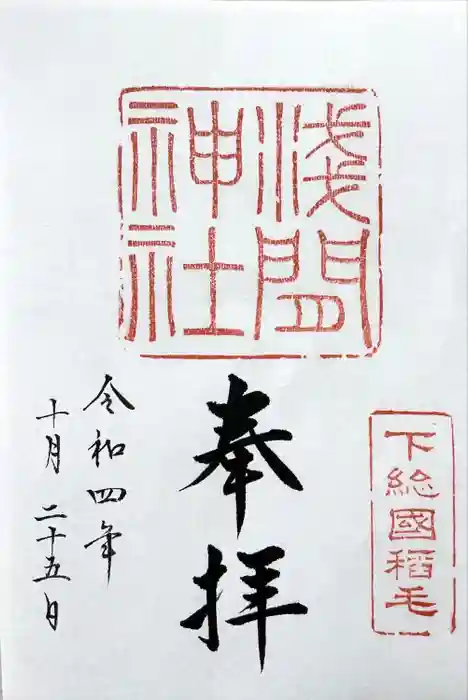 浅間
神社
下総國稲毛
奉拝
令和四年
十月二十五日